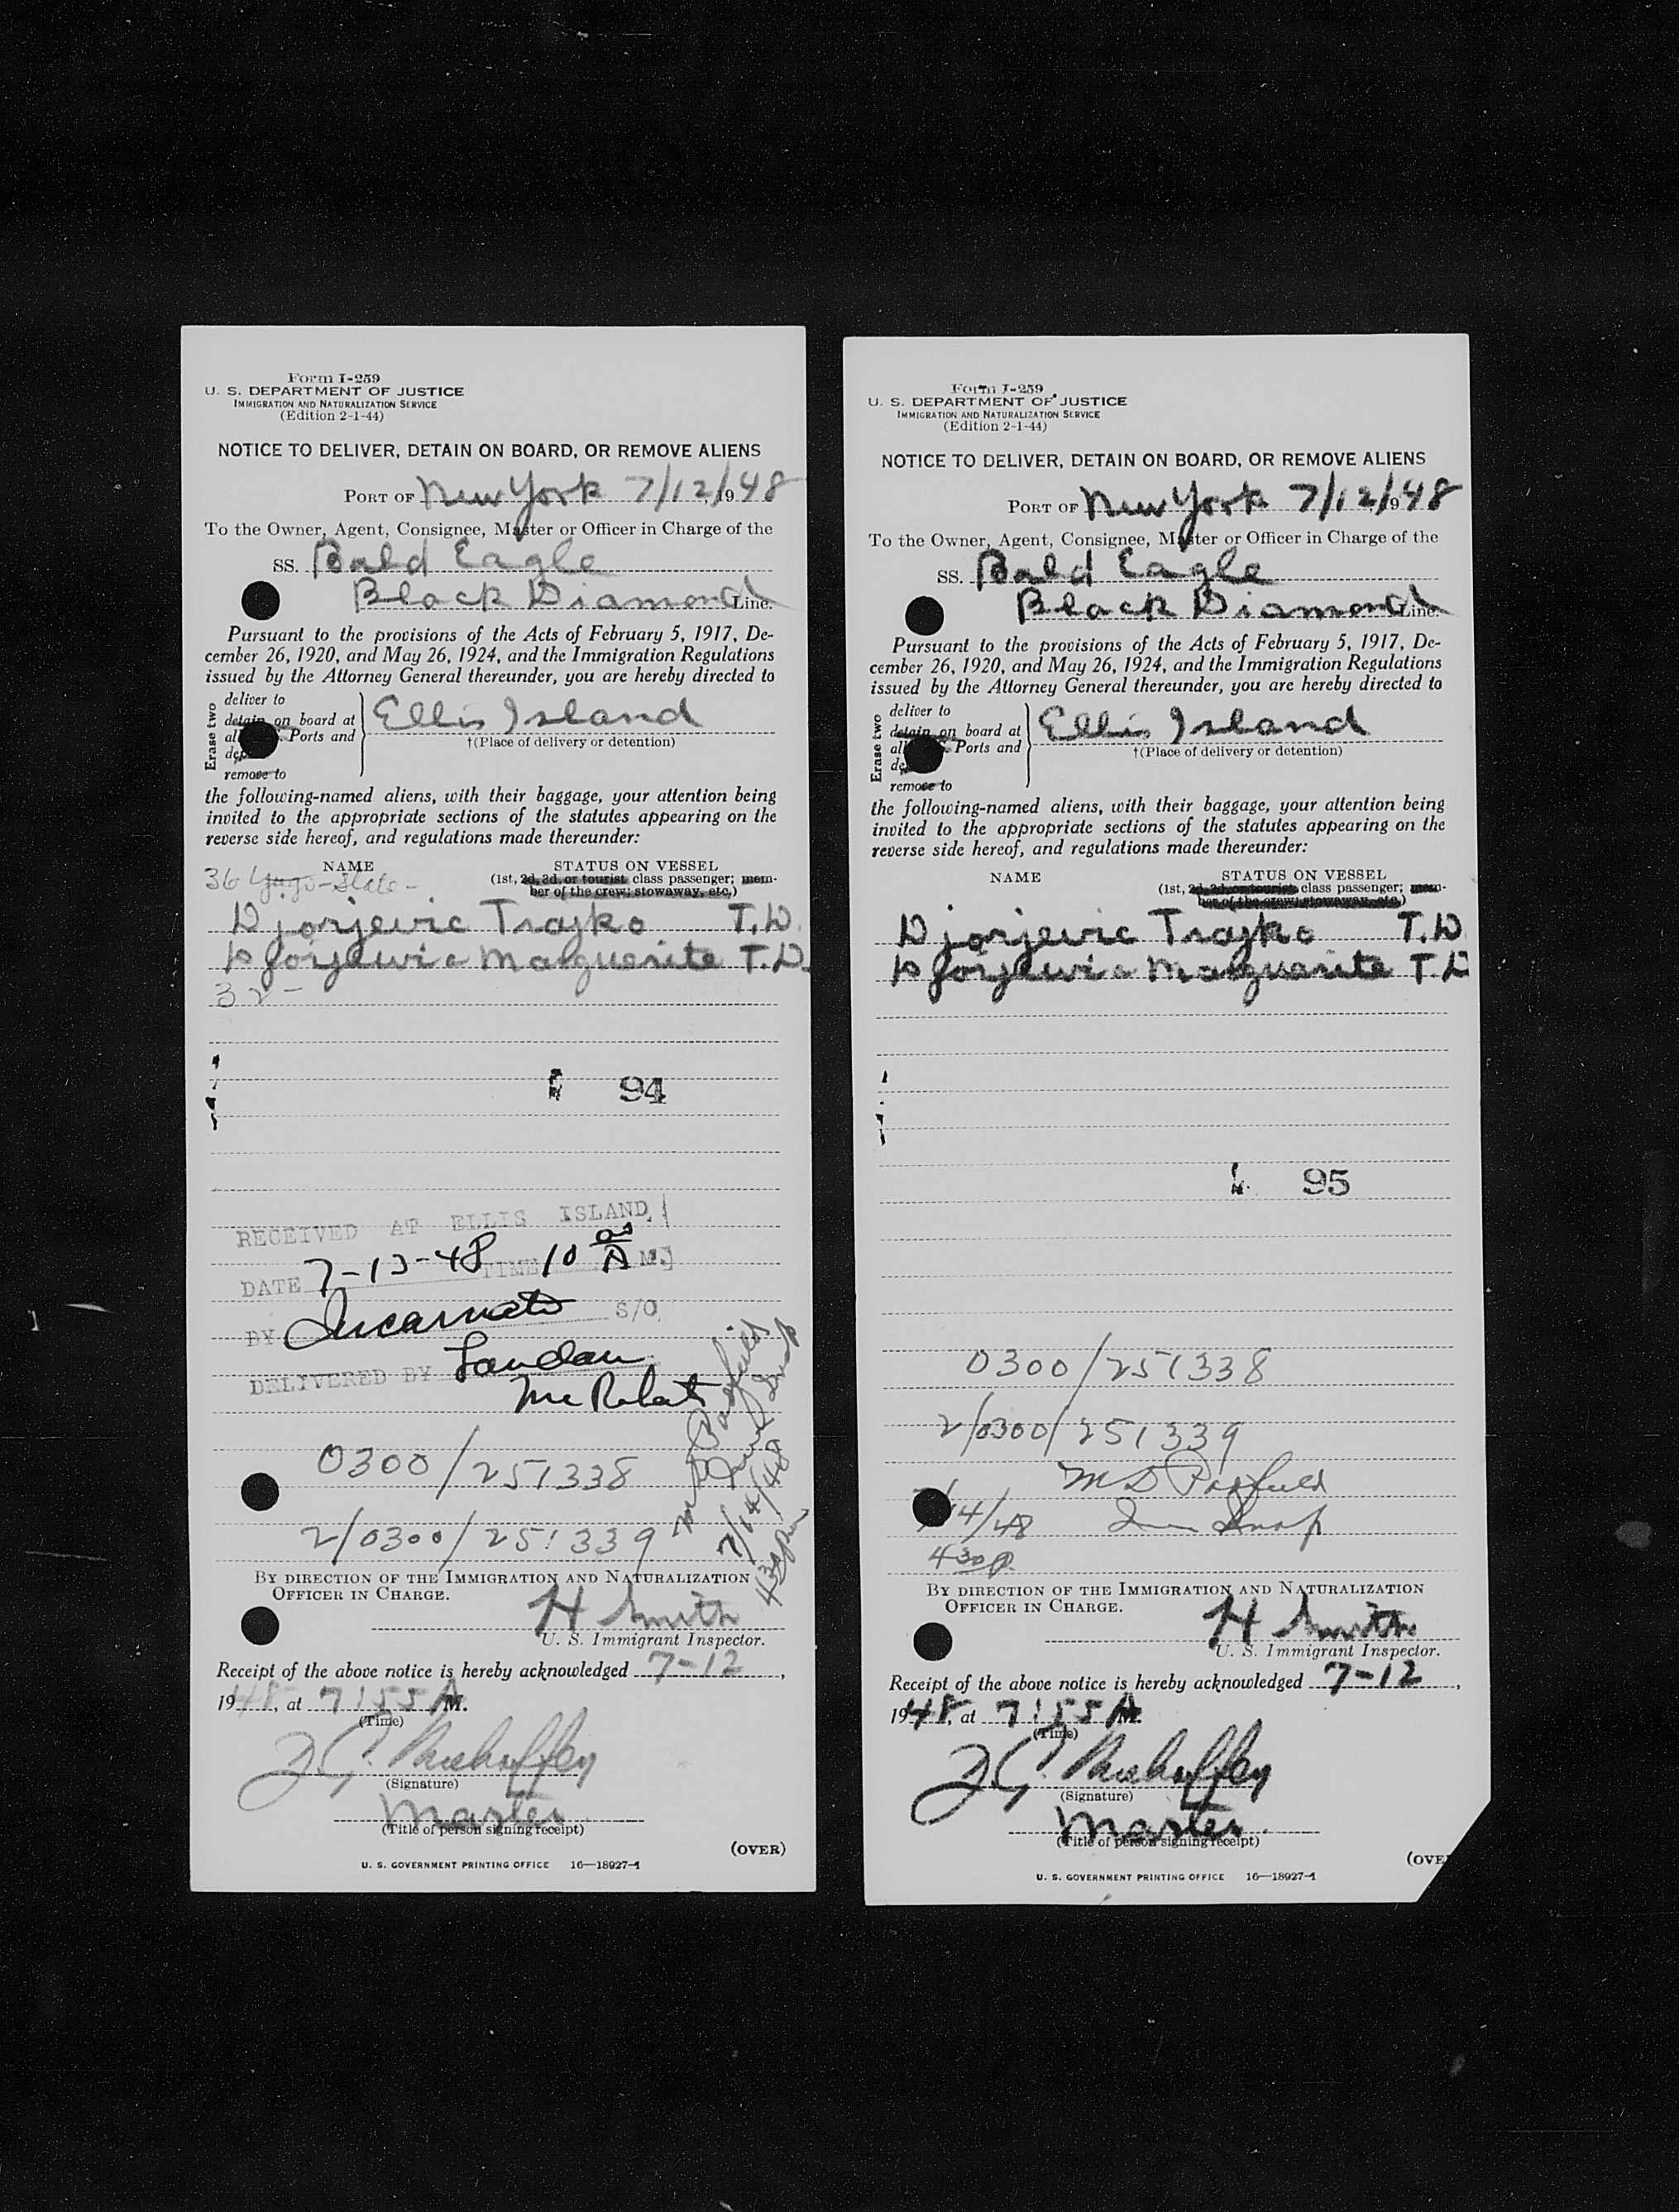 Form I-259
U. S. DEPARTMENT OF JUSTICE
IMMIGRATION AND NATURALIZATION SERVICE
(Edition 2-1-44)
NOTICE TO DELIVER, DETAIN ON BOARD, OR REMOVE ALIENS
PORT OF New York 7/12/, 1948
To the Owner, Agent, Consignee, Master or Officer in Charge of the
SS. Bald Eagle
Black Diamond Line.
Pursuant to the provisions of the Acts of February 5, 1917, De-
cember 26, 1920, and May 26, 1924, and the Immigration Regulations
issued by the Attorney General thereunder, you are hereby directed to
Erase two
deliver to
detain on board at
Ports and
remove to
Ellis Island
†(Place of delivery or detention)
the following-named aliens, with their baggage, your attention being
invited to the appropriate sections of the statutes appearing on the
reverse side hereof, and regulations made thereunder:
NAME STATUS ON VESSEL
36 Yugo-
(1st, 2d, 3d, or tourist class passenger; mem-
ber of the crew; stowaway, etc.)
Djorjevic Trajko T.D.
Djorjevic Marguerite T.D.
32-
94
RECEIVED AT ELLIS ISLAND,
DATE 7-13-48 TIME 10 00 A M.
BY Incarnato S/O
DELIVERED BY Landau
0300/251338
2/0300/251339
7/14/48
430pm
BY DIRECTION OF THE IMMIGRATION AND NATURALIZATION
OFFICER IN CHARGE.
H Smith
U. S. Immigrant Inspector.
Receipt of the above notice is hereby acknowledged 7-12,
1948, at 7:55 A M.
(Time)
(Signature)
Master
(Title of person signing receipt)
(OVER)
U. S. GOVERNMENT PRINTING OFFICE 16—18927-1
Form I-259
U. S. DEPARTMENT OF JUSTICE
IMMIGRATION AND NATURALIZATION SERVICE
(Edition 2-1-44)
NOTICE TO DELIVER, DETAIN ON BOARD, OR REMOVE ALIENS
PORT OF New York 7/12/, 1948
To the Owner, Agent, Consignee, Master or Officer in Charge of the
SS. Bald Eagle
Black Diamond Line.
Pursuant to the provisions of the Acts of February 5, 1917, De-
cember 26, 1920, and May 26, 1924, and the Immigration Regulations
issued by the Attorney General thereunder, you are hereby directed to
Erase two
deliver to
detain on board at
Ports and
remove to
Ellis Island
†(Place of delivery or detention)
the following-named aliens, with their baggage, your attention being
invited to the appropriate sections of the statutes appearing on the
reverse side hereof, and regulations made thereunder:
NAME STATUS ON VESSEL
(1st, 2d, 3d, or tourist class passenger; mem-
ber of the crew; stowaway, etc.)
Djorjevic Trajko T.D.
Djorjevic Marguerite T.D
95
0300/251338
2/0300/251339
14/48
430p
BY DIRECTION OF THE IMMIGRATION AND NATURALIZATION
OFFICER IN CHARGE.
H Smith
U. S. Immigrant Inspector.
Receipt of the above notice is hereby acknowledged 7-12,
1948, at 7:55 A M.
(Time)
(Signature)
Master
(Title of person signing receipt)
(OVE
U. S. GOVERNMENT PRINTING OFFICE 16—18927-1